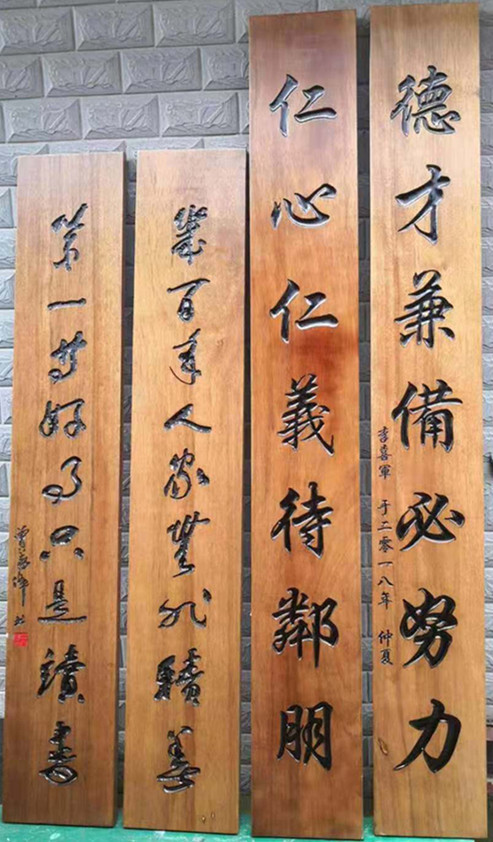 德才兼備必努力
李喜軍 于二零一八年 仲夏
仁心仁義待鄰朋
幾百年人家無非積善
第一等好事只是讀書